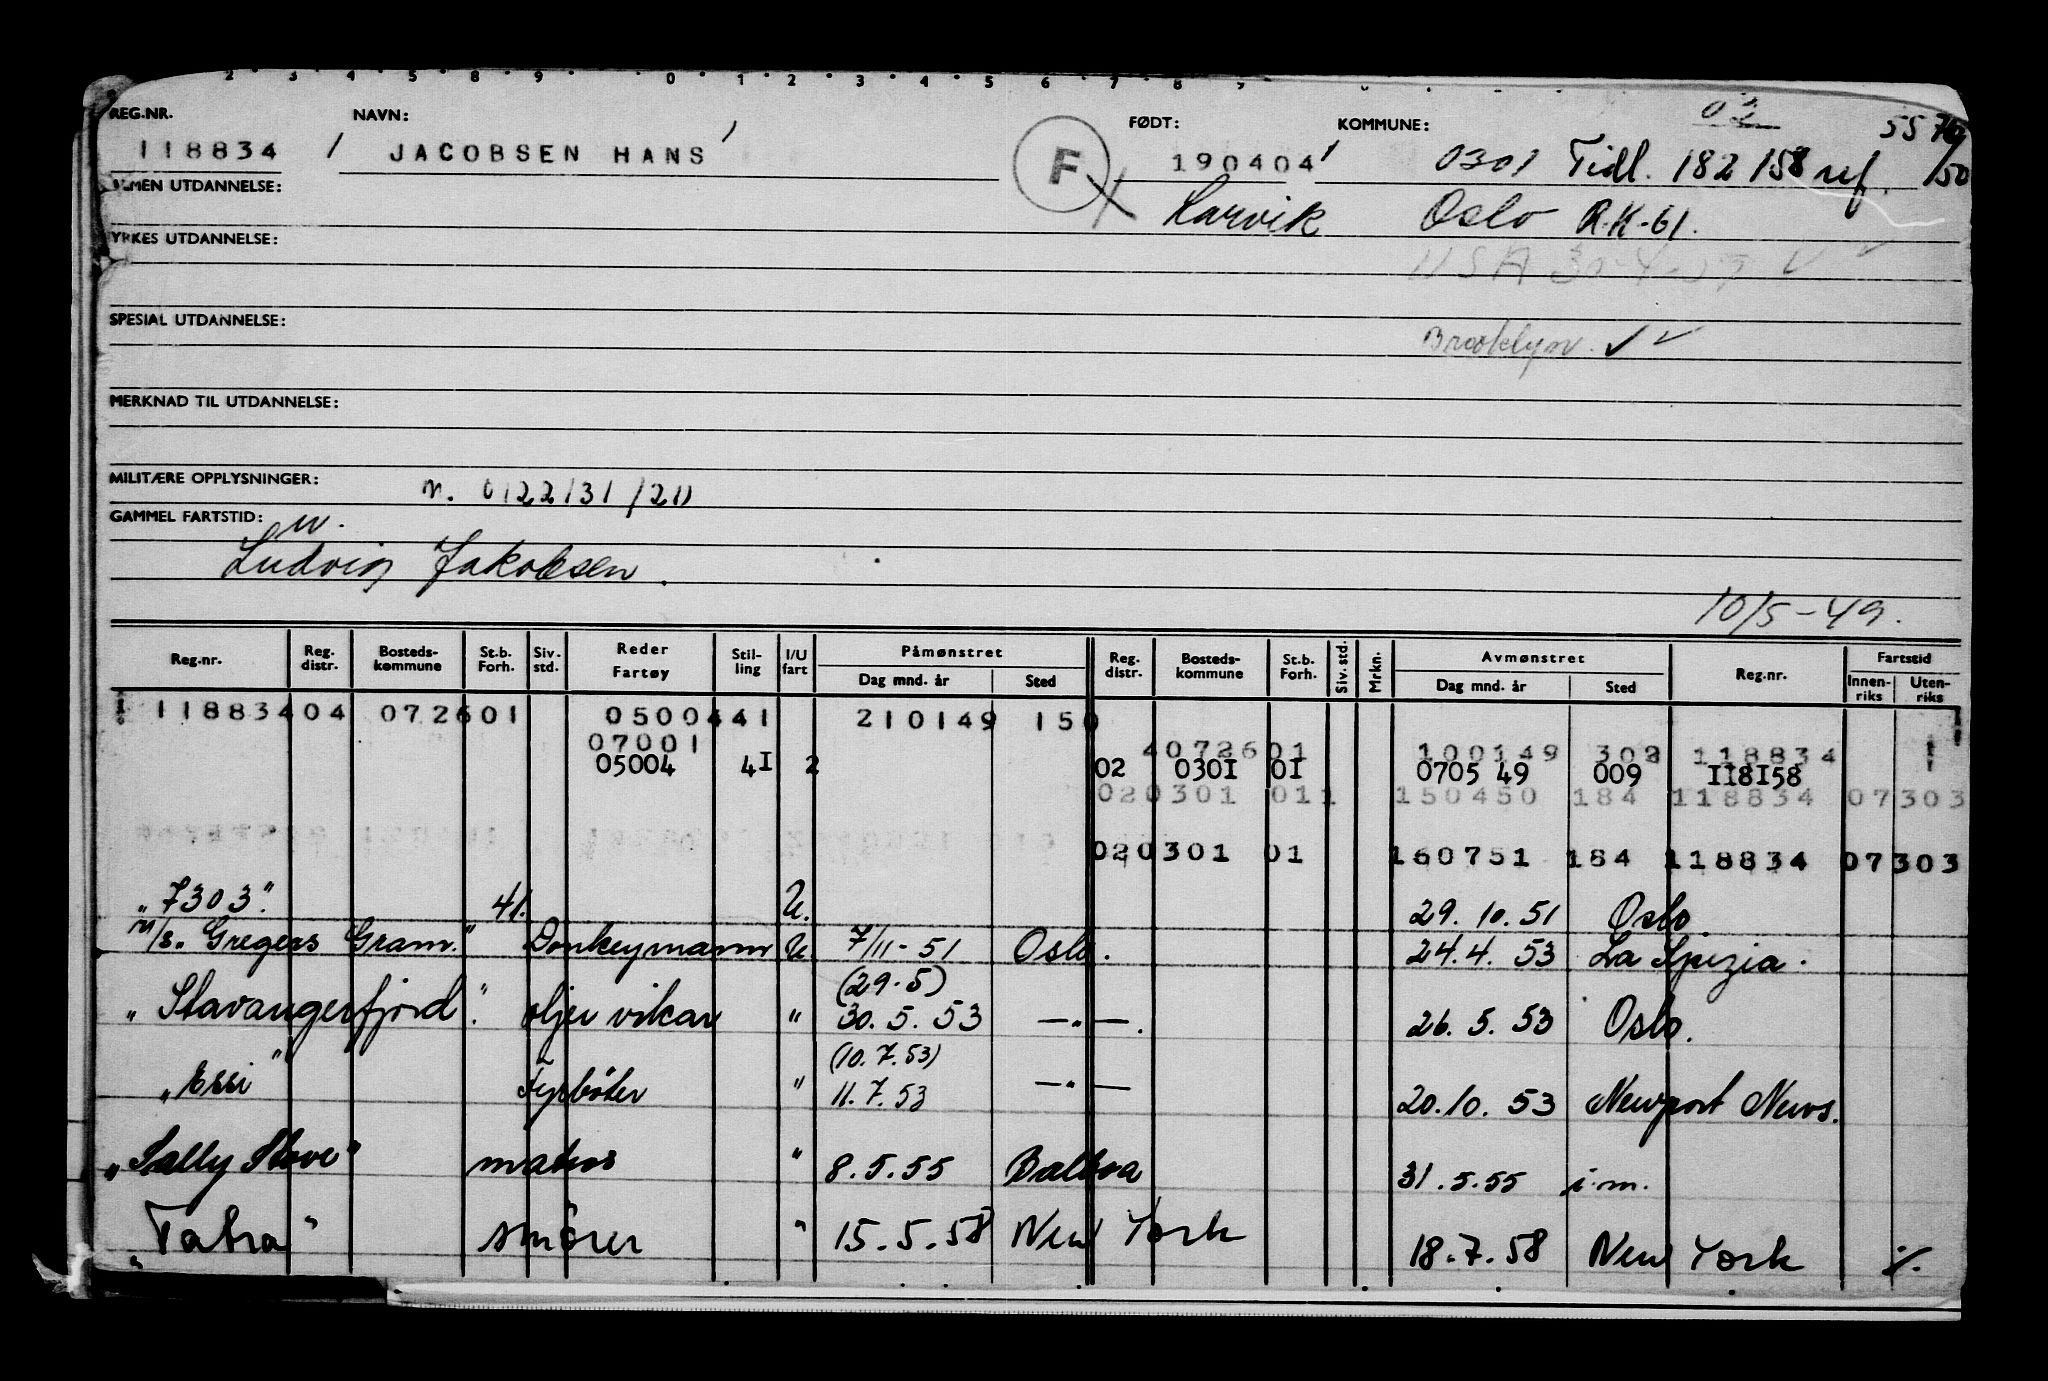 2 3 4 5 8 9 0 1 2 3 4 5 6 7 8 9
REG.NR. NAVN: FØDT: KOMMUNE: 02 55
118834 / JACOBSEN HANS F 190404 0301 Tidl. 182158 ref. /50
UTDANNELSE: Harvik Oslo R.K-61.
YRKES UTDANNELSE: USA 30-4-
SPESIAL UTDANNELSE: Brooklyn. ✓ ✓
MERKNAD TIL UTDANNELSE:
MILITÆRE OPPLYSNINGER: n. 0122131/211
GAMMEL FARTSTID:
Ludvig Jakobsen.
10/5-49.
Reg.nr. Reg. distr. Bosteds-kommune St.b. Forh. Siv. std. Reder Fartøy Stil-ling I/U fart Påmønstret Dag mnd. år Sted Reg. distr. Bosteds-kommune St.b. Forh. Siv. std. Mrkn. Avmønstret Dag mnd. år Sted Reg.nr. Fartstid Innen-riks Uten-riks
11883404 072601 0500441 210149 150
07001 4072601 100149 302 118834
05004 4I 2 02 030I 0I 0705 49 009 II8I58
020301 011 150450 184 118834 07303
020301 01 160751 184 118834 07303
"7303" 41. U. 29. 10. 51 Oslo
m/s "Gregers Gram." Donkeymann U 7/11-51 Oslo. 24.4. 53 La Spezia.
(29.5)
"Stavangerfjord". oljer vikar " 30. 5. 53 —"—. 26. 5. 53 Oslo.
(10.7.53)
"Essi" Fyrbøter " 11.7.53 —"— 20.10. 53 Newport News.
"Sally Stove" matros " 8.5.55 Balboa 31.5.55 i.m.
"Tatra" smörer " 15.5.58 New York 18.7.58 New York %.